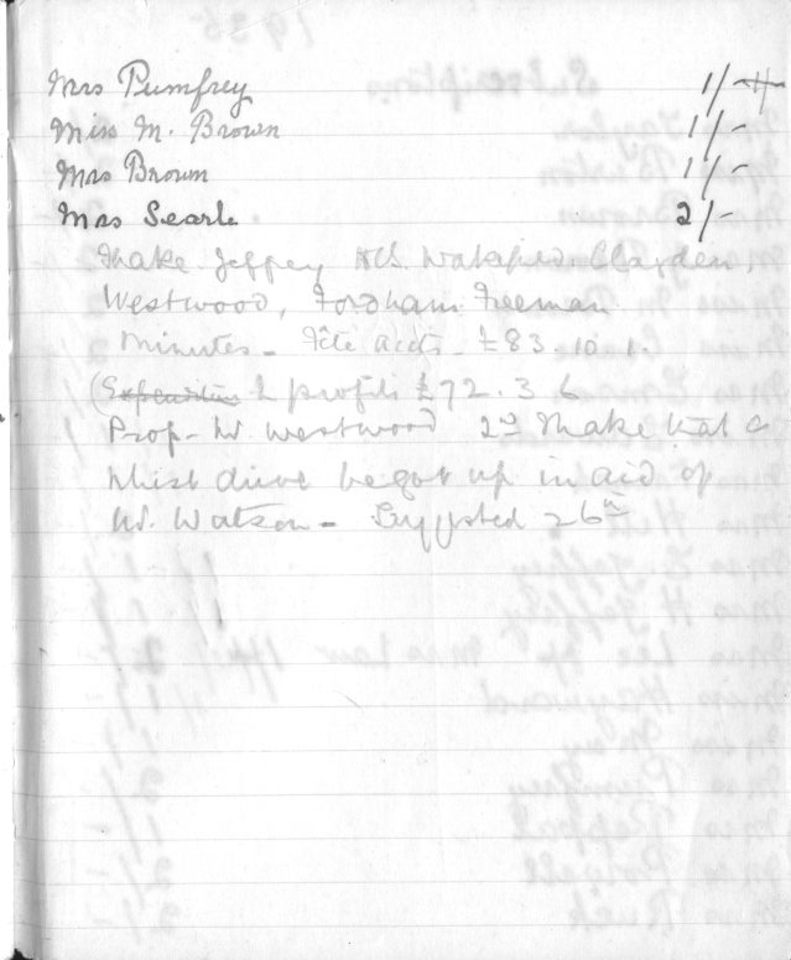 Mrs Pumfrey 1/-
Miss M. Brown 1/-
Mrs Brown 1/-
Mrs Searle 2/-
Thake Jeffrey Wakefield Clayden,
Westwood, Fordham Freeman
Minutes - Fête accts - £83.10.1.
(Expenditure profits £72.3.6
Prop - W. Westwood 2nd Thake that a
whist drive be got up in aid of
W. Watson - Suggested 26th